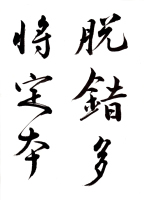 脱錯多
時定本